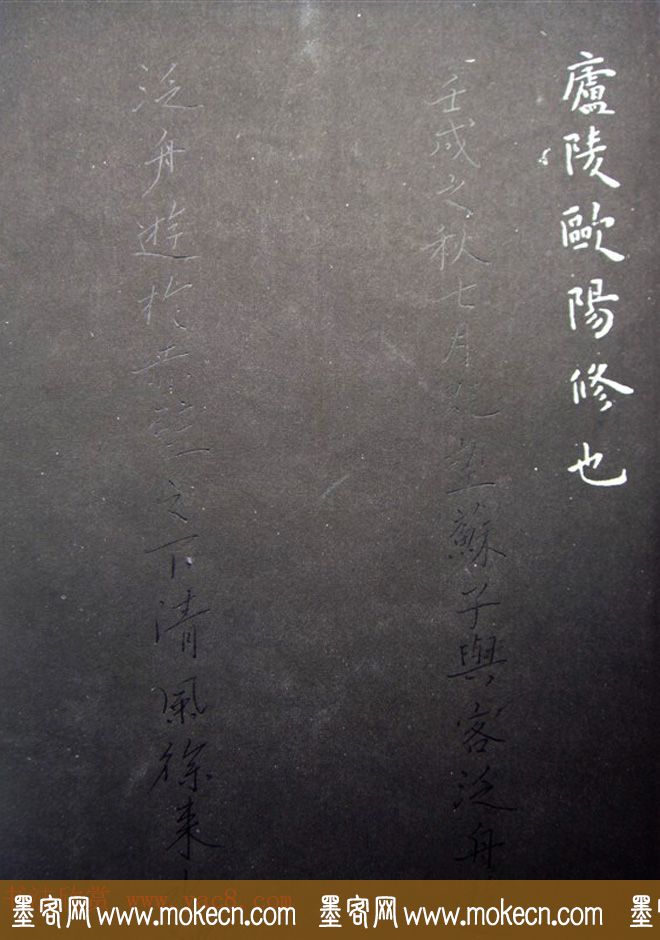 廬陵歐陽修也
壬戌之秋七月既望蘇子與客泛舟
泛舟遊於赤壁之下清風徐來
书法欣赏 www.yac8.com
墨客网 www.mokecn.com 墨客网 www.mokecn.com 墨客网 w